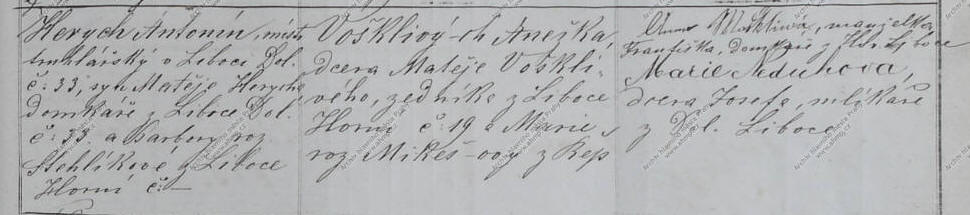 Herych Antonín, mistr
truhlářský v Liboci Dol.
č: 33, syn Matěje Herycha
domkáře z Liboce Dol.
č: 33. a Barbory roz
Stehlíkové z Liboce
Horní č: —
Voskliový-ch Anežka,
dcera Matěje Voskli-
vého, zedníka z Liboce
Horní č: 19 a Marie
roz Mikeš-ovy z Řep
Anna Vosklivá, manželka
Františka, Domkáře z Hor. Liboce
Marie Neduhova,
dcera Josefa, mlékaře
z Dol. Liboce